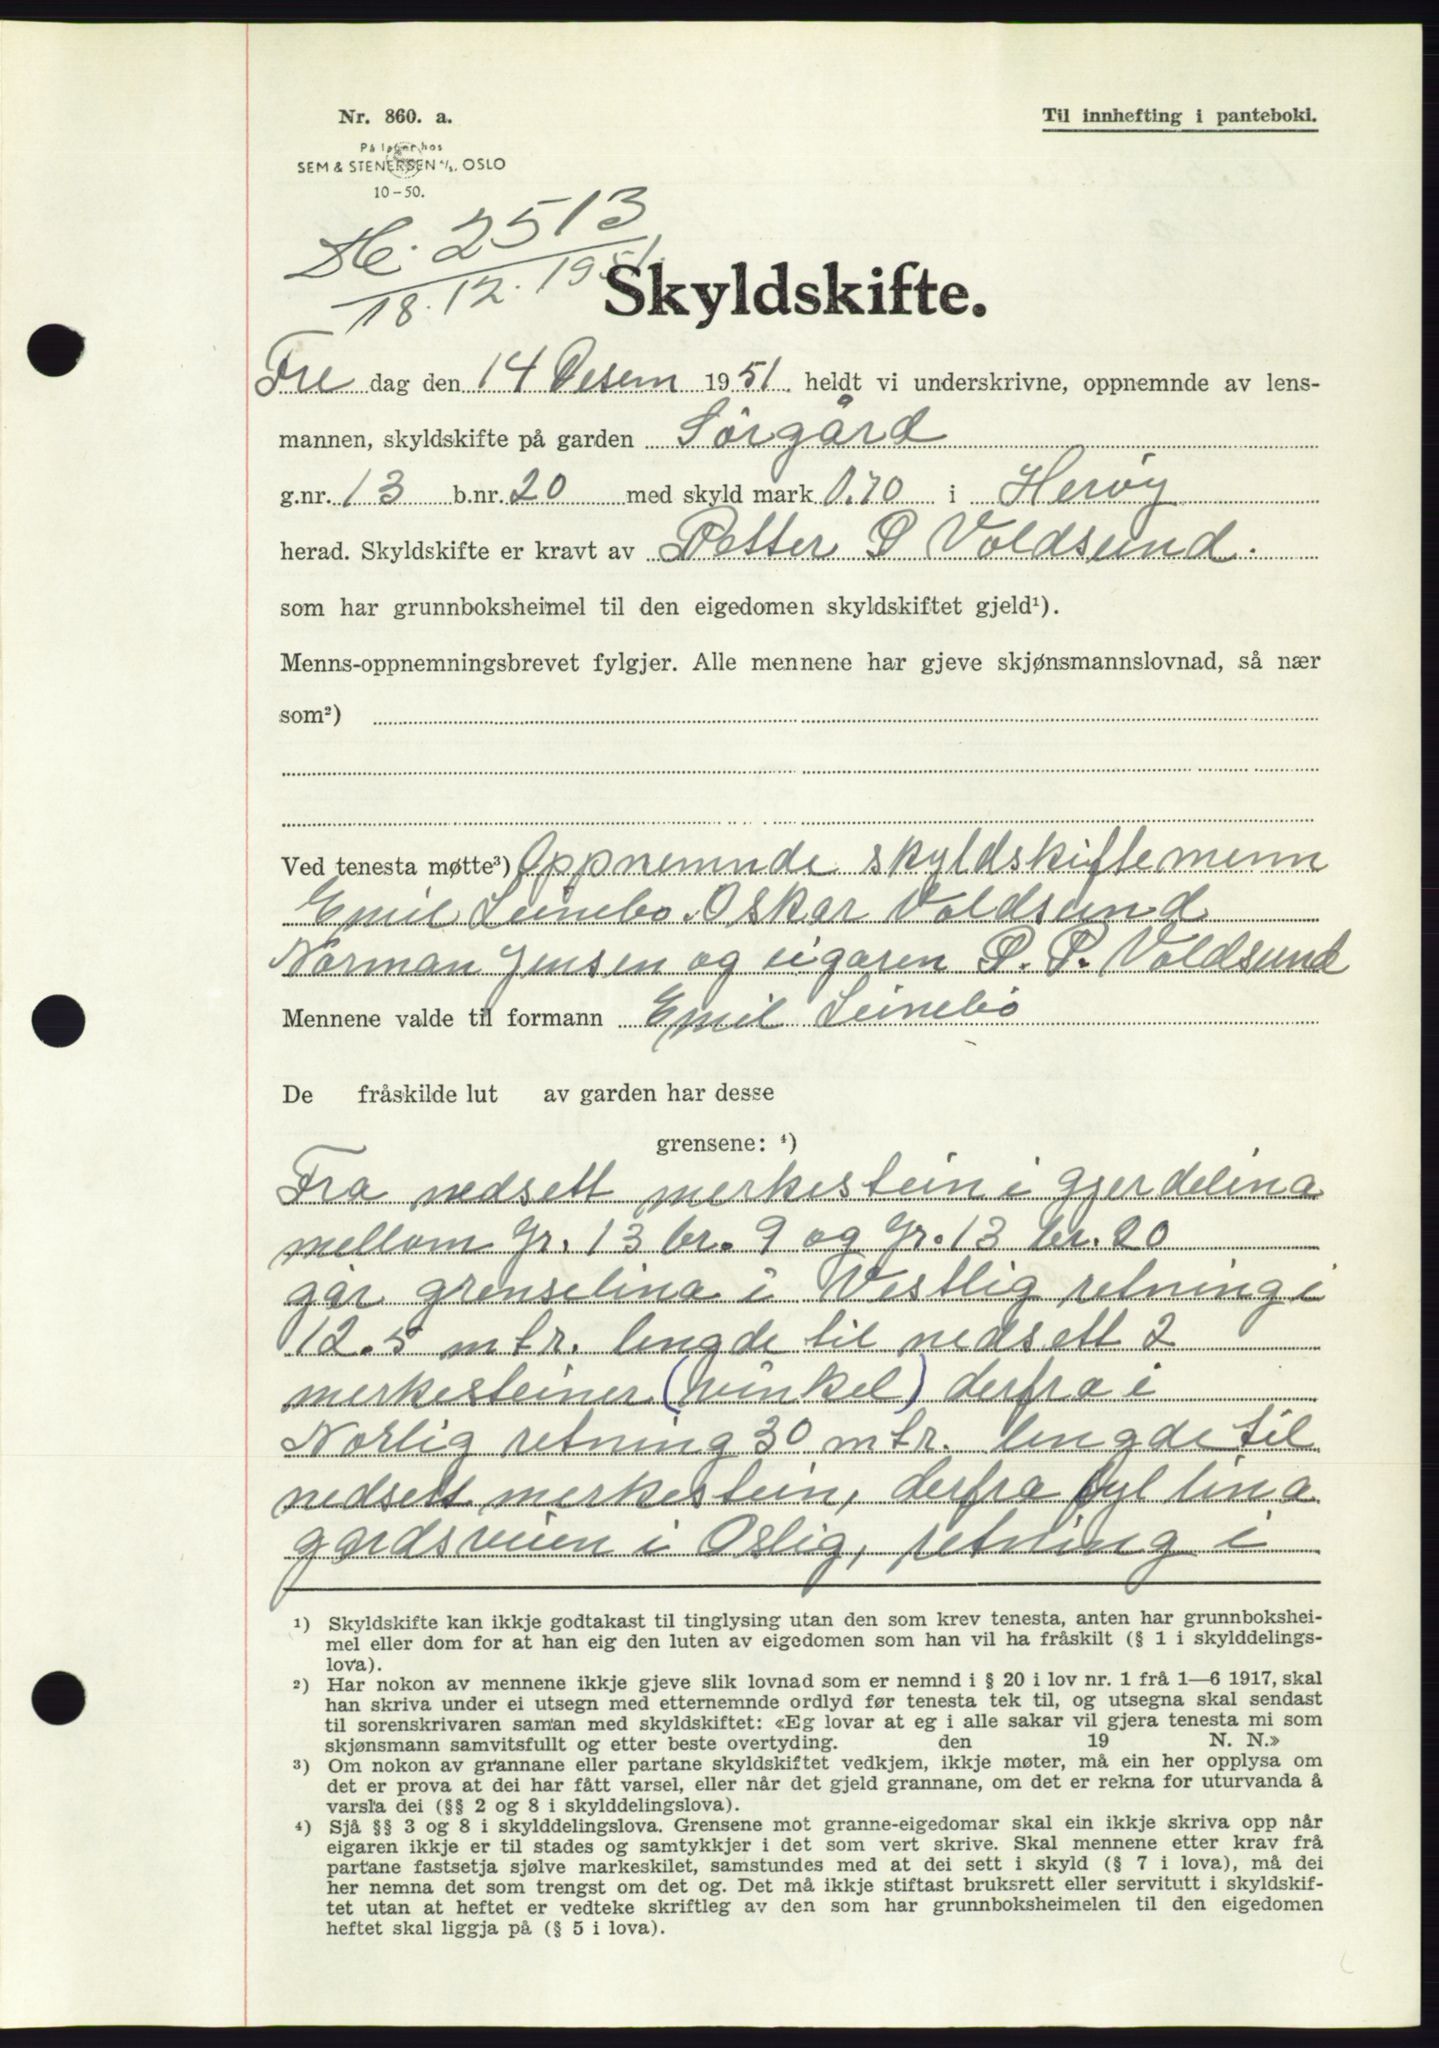 Nr. 860. a.
Til innhefting i panteboki.
På lager hos
SEM & STENERSEN A/S. OSLO
10-50.
2513
18.12.1951.
Skyldskifte.
Fre dag den 14 Desem 1951. heldt vi underskrivne, oppnemnde av lens-
mannen, skyldskifte på garden Sørgård
g.nr. 13 b.nr. 20 med skyld mark 0.70 i Herøy
herad. Skyldskifte er kravt av Petter P Voldsund.
som har grunnboksheimel til den eigedomen skyldskiftet gjeld¹).
Menns-oppnemningsbrevet fylgjer. Alle mennene har gjeve skjønsmannslovnad, så nær
som²)
Ved tenesta møtte³) Oppnemnde skyldskiftemenn
Emil Leinebø. Oskar Voldsund
Norman Jensen og eigaren P. P. Voldsund
Mennene valde til formann Emil Leinebø
De fråskilde lut av garden har desse
grensene: ⁴)
Fra nedsett merkestein i gjerdelina
mellom Gr. 13 br. 9 og Gr. 13 br. 20
går grenselina i Vestlig retning i
12.5 mtr. lengde til nedsett 2
merkesteiner (vinkel) derfra i
Norlig retning 30 mtr. lengde til
nedsett merkestein, derfra fyl lina
gardsveien i Oslig, retning i
¹) Skyldskifte kan ikkje godtakast til tinglysing utan den som krev tenesta, anten har grunnbokshei-
mel eller dom for at han eig den luten av eigedomen som han vil ha fråskilt (§ 1 i skylddelings-
lova).
²) Har nokon av mennene ikkje gjeve slik lovnad som er nemnd i § 20 i lov nr. 1 frå 1—6 1917, skal
han skriva under ei utsegn med etternemnde ordlyd før tenesta tek til, og utsegna skal sendast
til sorenskrivaren saman med skyldskiftet: «Eg lovar at eg i alle sakar vil gjera tenesta mi som
skjønsmann samvitsfullt og etter beste overtyding. den 19 N. N.»
³) Om nokon av grannane eller partane skyldskiftet vedkjem, ikkje møter, må ein her opplysa om
det er prova at dei har fått varsel, eller når det gjeld grannane, om det er rekna for uturvanda å
varsla dei (§§ 2 og 8 i skylddelingslova).
⁴) Sjå §§ 3 og 8 i skylddelingslova. Grensene mot granne-eigedomar skal ein ikkje skriva opp når
eigaren ikkje er til stades og samtykkjer i det som vert skrive. Skal mennene etter krav frå
partane fastsetja sjølve markeskilet, samstundes med at dei sett i skyld (§ 7 i lova), må dei
her nemna det som trengst om det og. Det må ikkje stiftast bruksrett eller servitutt i skyldskif-
tet utan at heftet er vedteke skriftleg av den som har grunnboksheimelen til den eigedomen
heftet skal liggja på (§ 5 i lova).